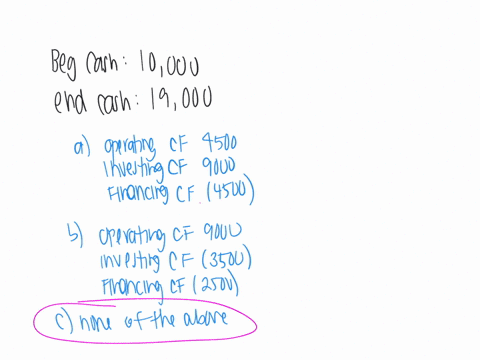 Beg cash: 10,000
end cash: 19,000
a) operating CF 4500
Investing CF 9000
Financing CF (4500)
b) operating CF 9000
investing CF (3500)
Financing CF (2500)
c) none of the above